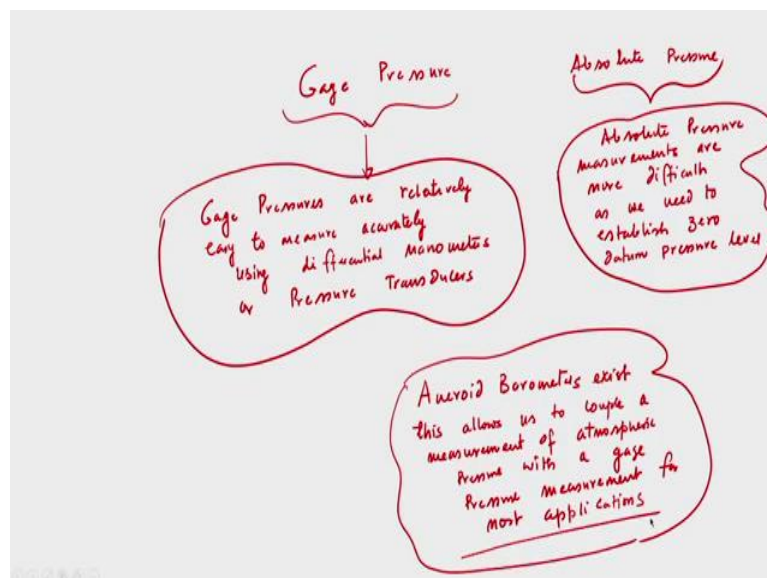 Gage Pressure
Gage Pressures are relatively
easy to measure accurately
using differential manometers
or Pressure Transducers
Absolute Pressure
Absolute Pressure
measurements are
more difficult
as we need to
establish zero
datum pressure level
Aneroid Barometers exist
this allows us to couple a
measurement of atmospheric
pressure with a gage
pressure measurement for
most applications